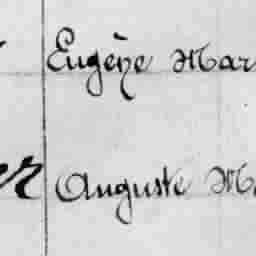 Eugène Mar
er Auguste M